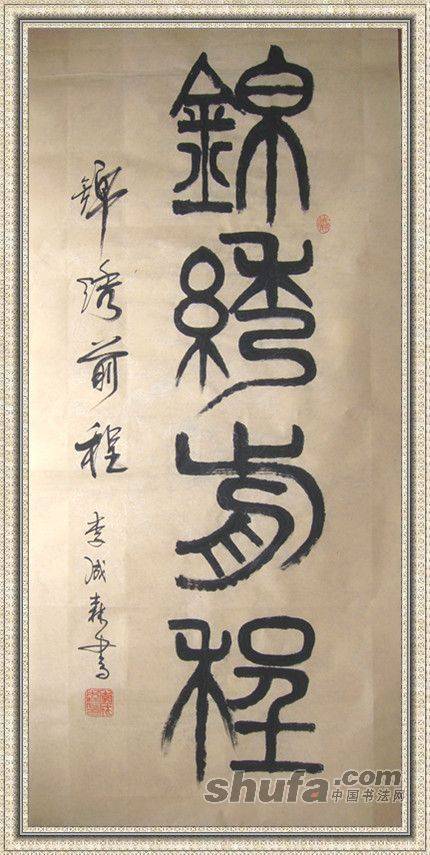 錦綉前程
锦绣前程
李 書
shufa.com
中国书法网